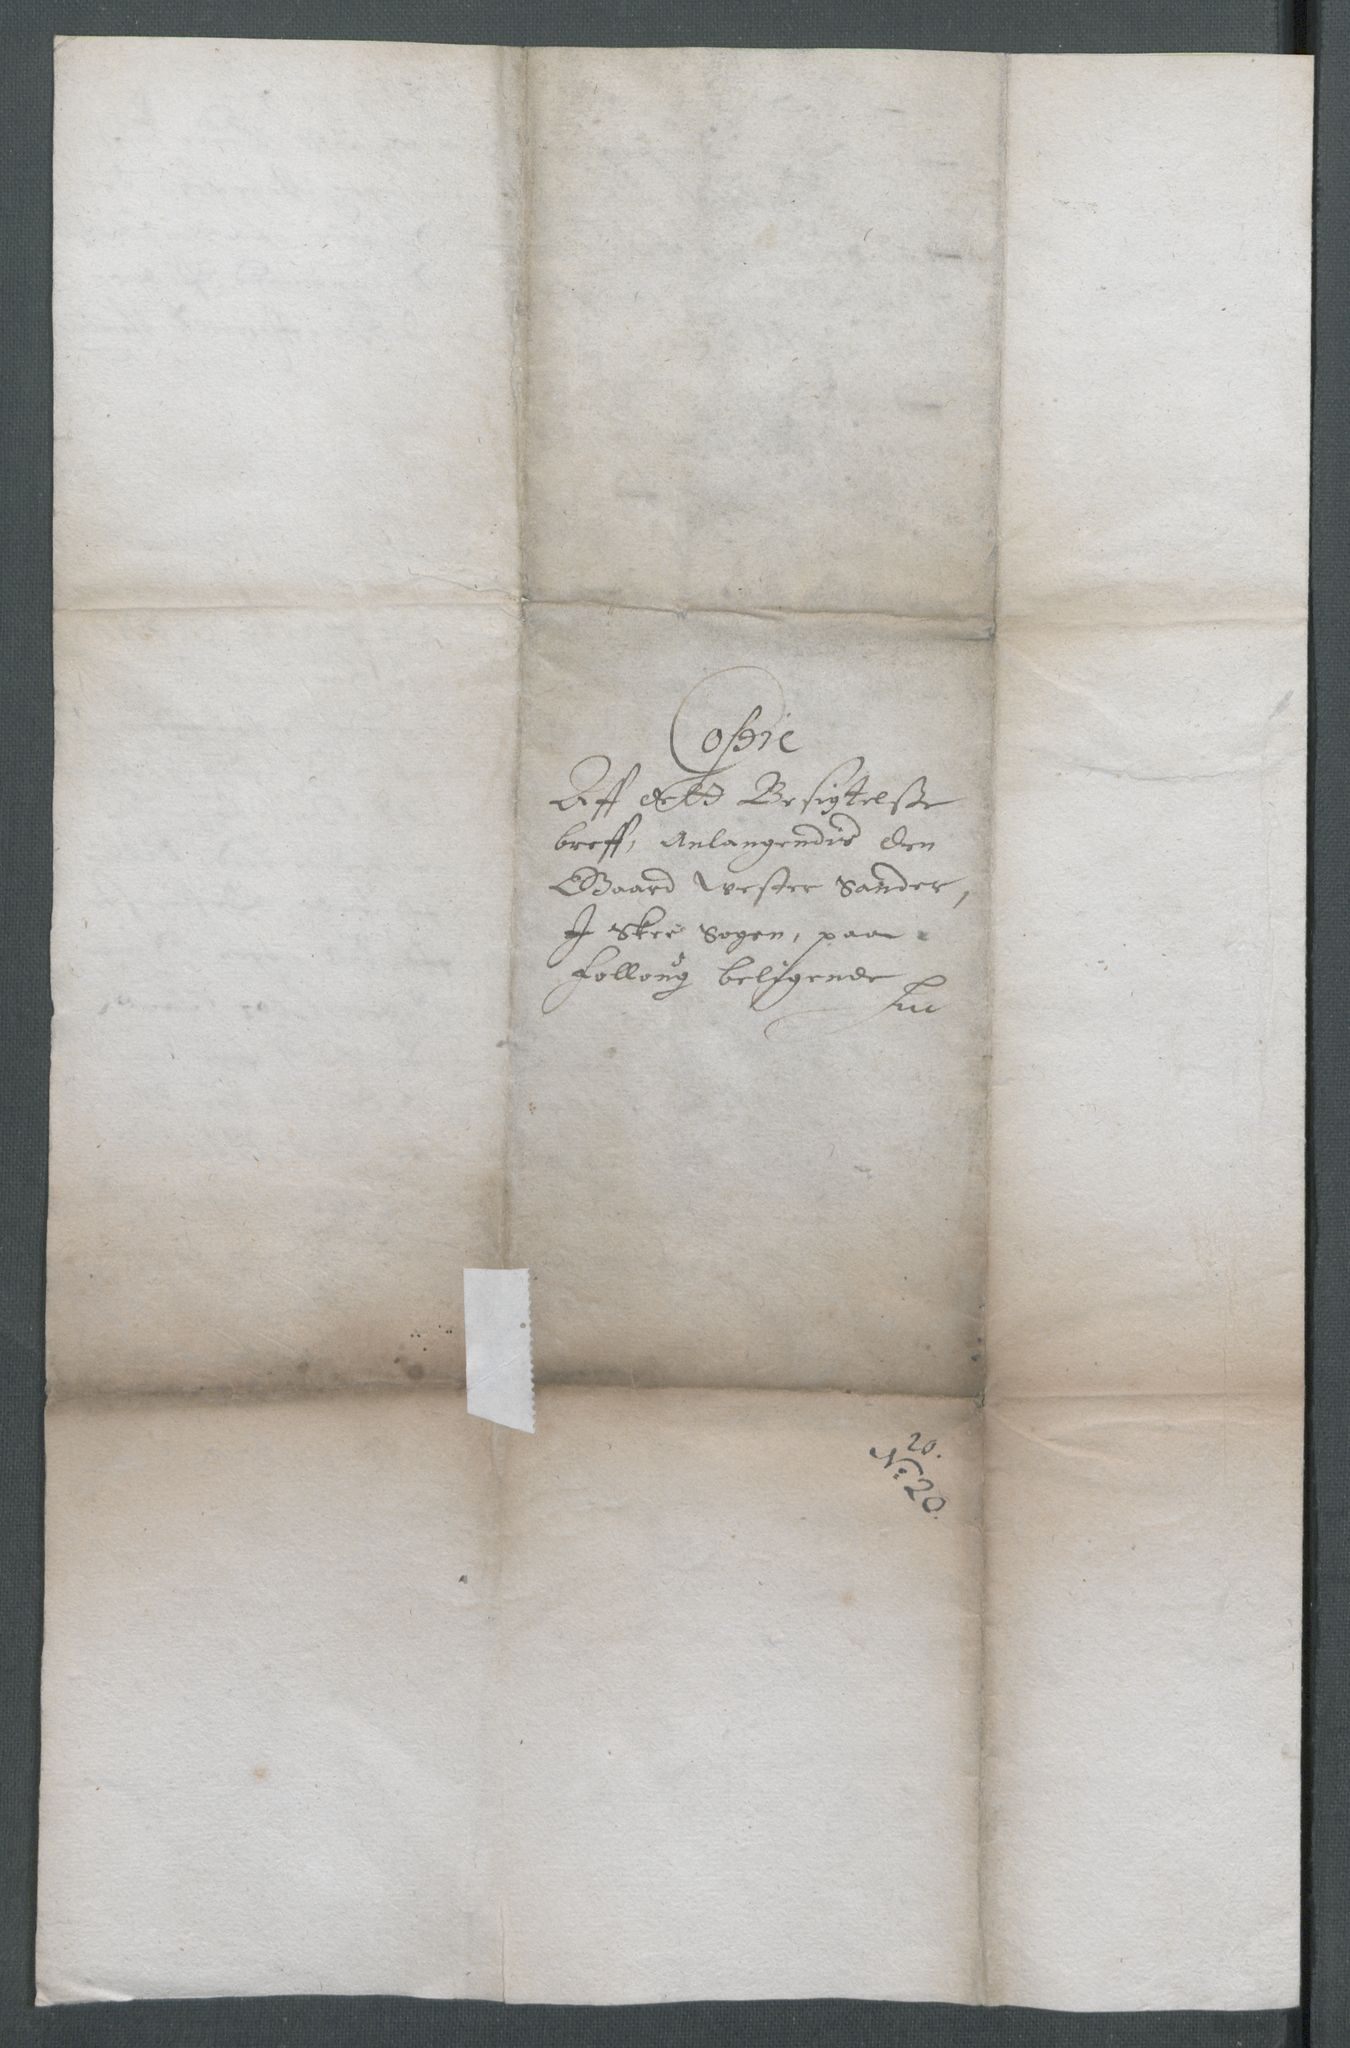 Copie
Aff eett Besigtelsse
breff, Anlangendis den
Gaard Wester Sander,
J Skee Sogen, paa
Folloug beligende
20.
No: 20.